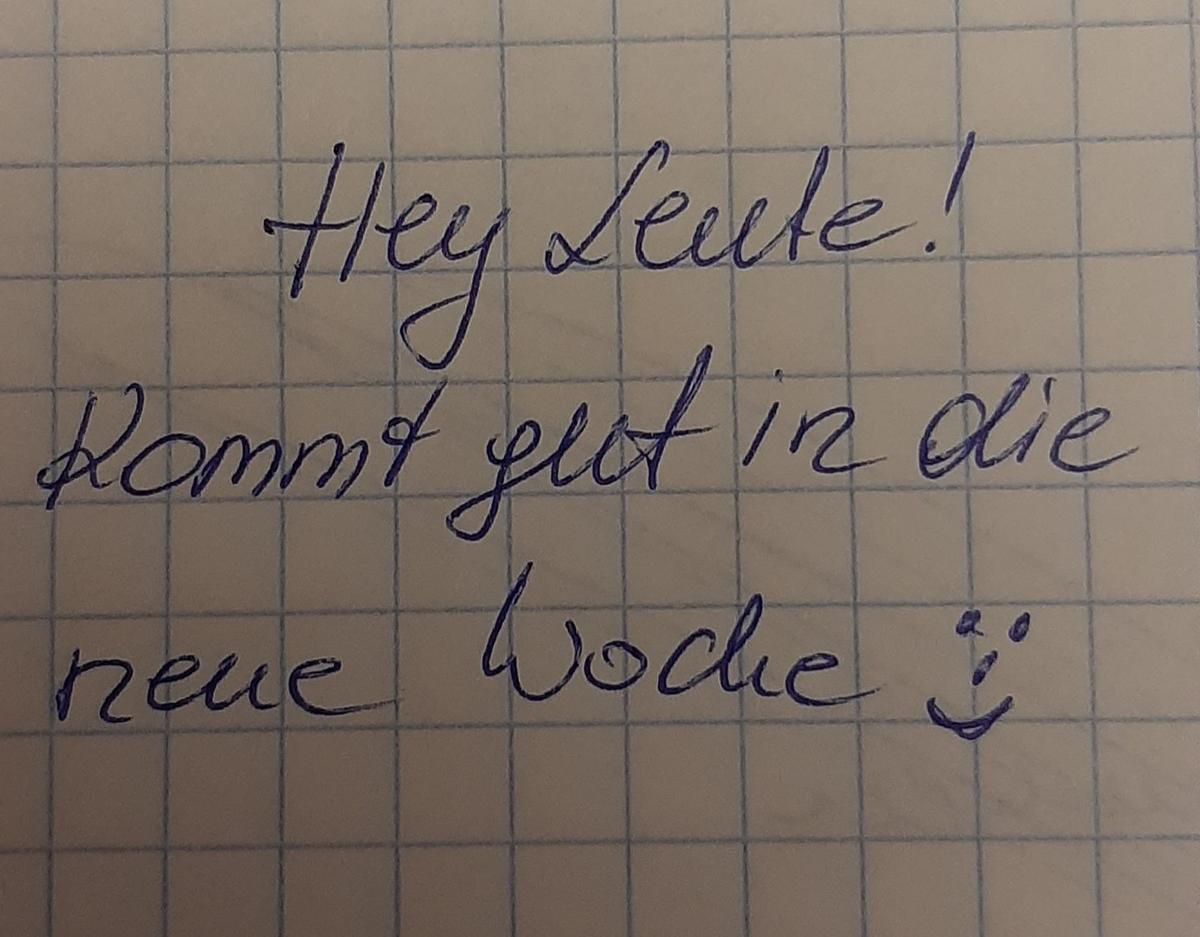 Hey Leute!
Kommt gut in die
neue Woche